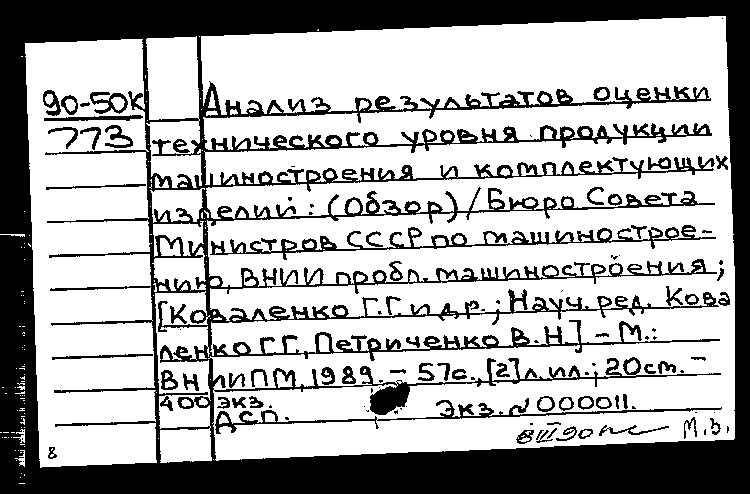 90-50К Анализ результатов оценки
773 технического уровня продукции
машиностроения и комплектующих
изделий: (Обзор)/Бюро Совета
Министров СССР по машинострое-
нию, ВНИИ пробл. машиностроения;
[Коваленко Г.Г. и др.; Науч. ред. Кова
ленко Г.Г., Петриченко В.Н.] - М.:
ВНИИПМ, 1989. - 57с., [2]л.ил.; 20см. -
400 экз.
ДСП. Экз. N 000011.
М.Б.
8